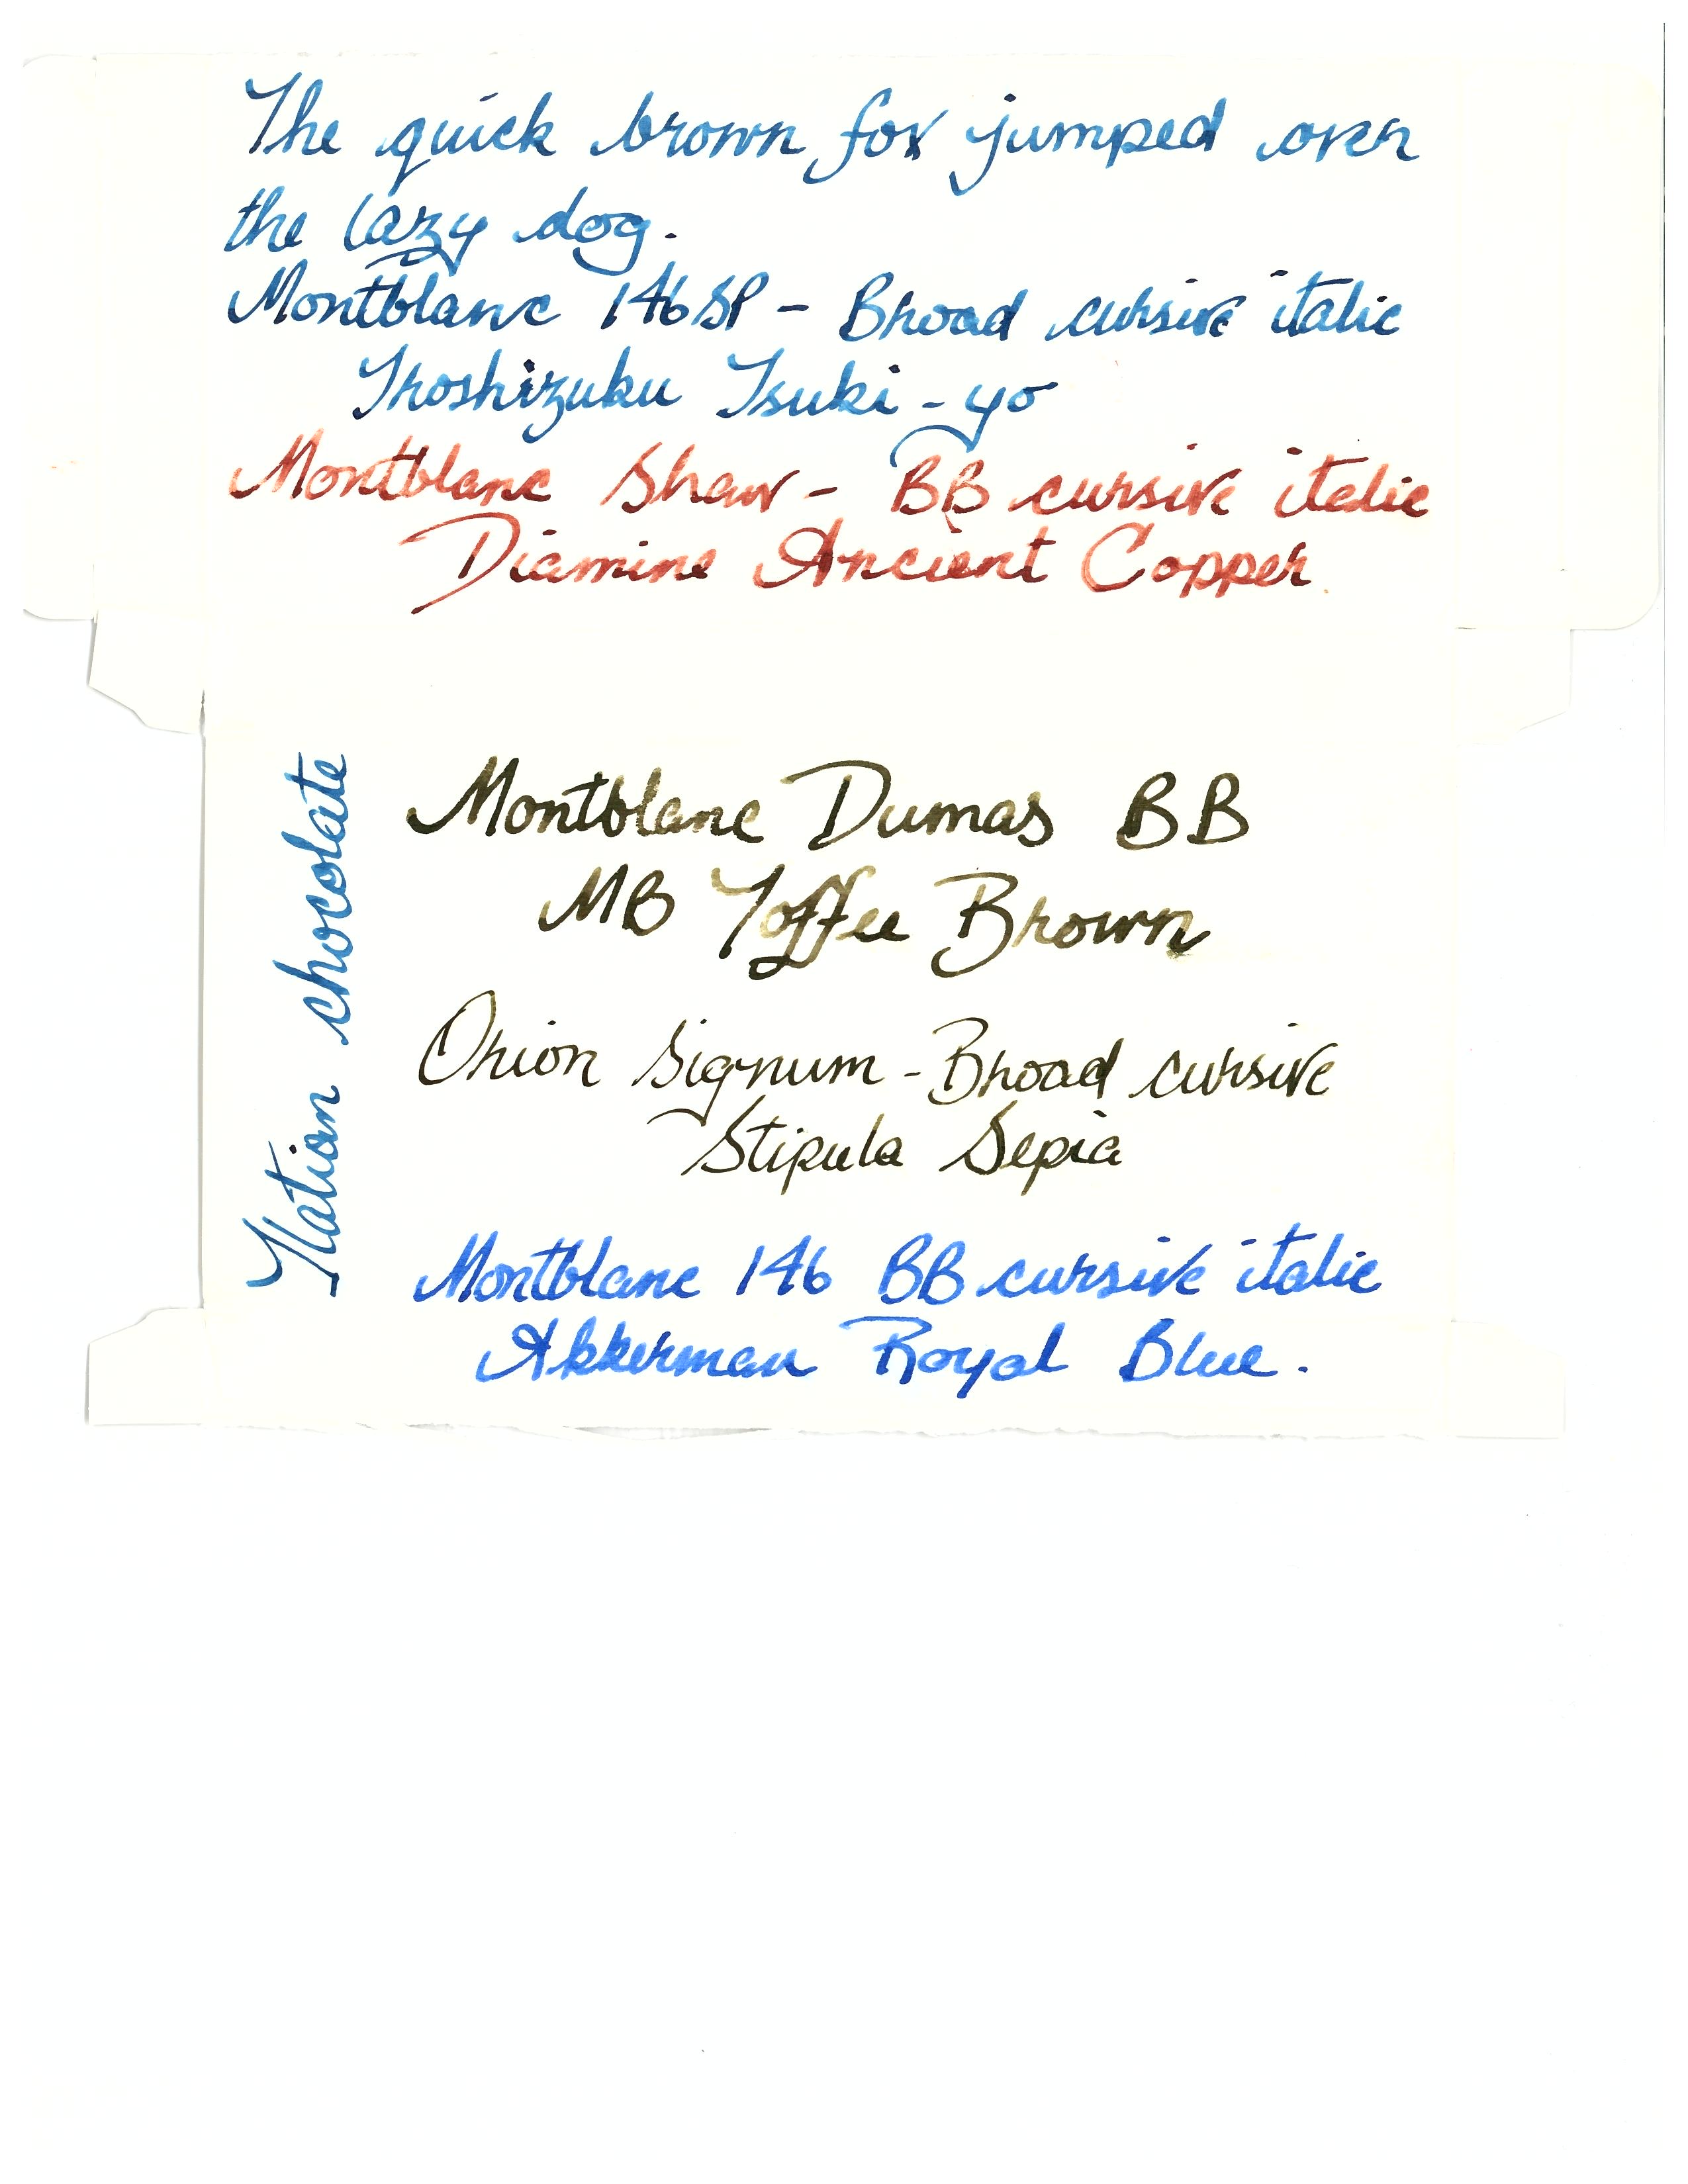 The quick brown fox jumped over
the lazy dog.
Montblanc 146 SP - Broad cursive italic
Iroshizuku Tsuki-yo
Montblanc Shaw - BB cursive italic
Diamine Ancient Copper.
chocolate
Montblanc Dumas BB
MB Toffee Brown
Orion Signum - Broad cursive
Stipula Sepia
Montblanc 146 BB cursive italic
Akkerman Royal Blue.